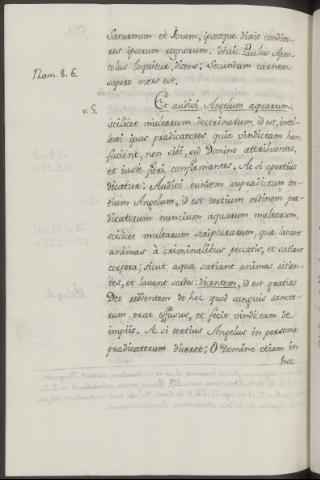 Saturnum et Iovem, ipsosque dixit condito-
res ipsorum regnorum. Paulus Apos-
tolus loquitur, dicens: Secundum carnem
Rom. 8. 6.
sapere mors est.
v. 5.
Et audivi Angelum aquarum,
scilicet multarum doctrinarum, id est, intel-
lexi ipsos praedicatores, quia vindictam hanc
facient, non sibi, sed Domino attribuentes,
et iuste fieri confirmantes. Ac si apertius
dicatur: Audivi eumdem supradictum ter-
tium Angelum, id est tertium ordinem prae-
dicatorum nuncium aquarum multarum,
scilicet multarum scripturarum, qua lavant
animas à criminalibus peccatis, et satiant
corpora; sicut, aqua satiant animas sitien-
tes, et lavant sordes: dicentem, id est gratias
Deo reddentem de hoc quod sanguis sancto-
rum erat effusus, et fecit vindictam de
impiis. Ac si tertius Angelus in persona
praedicatorum diceret: O Domine etiam in
hoc